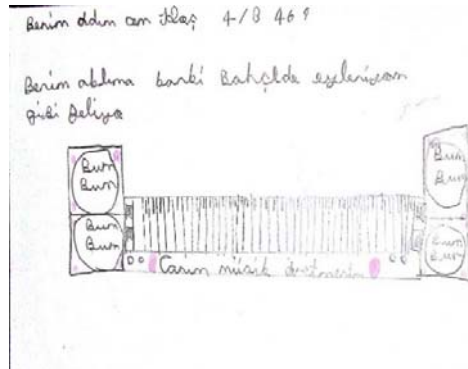 Benim adım can 4/B 469
Benim aklıma sanki Bahçede egleniyom
gibi geliyo
Bum Bum
Bum Bum
Bum Bum
Bum Bum
Canım müzik